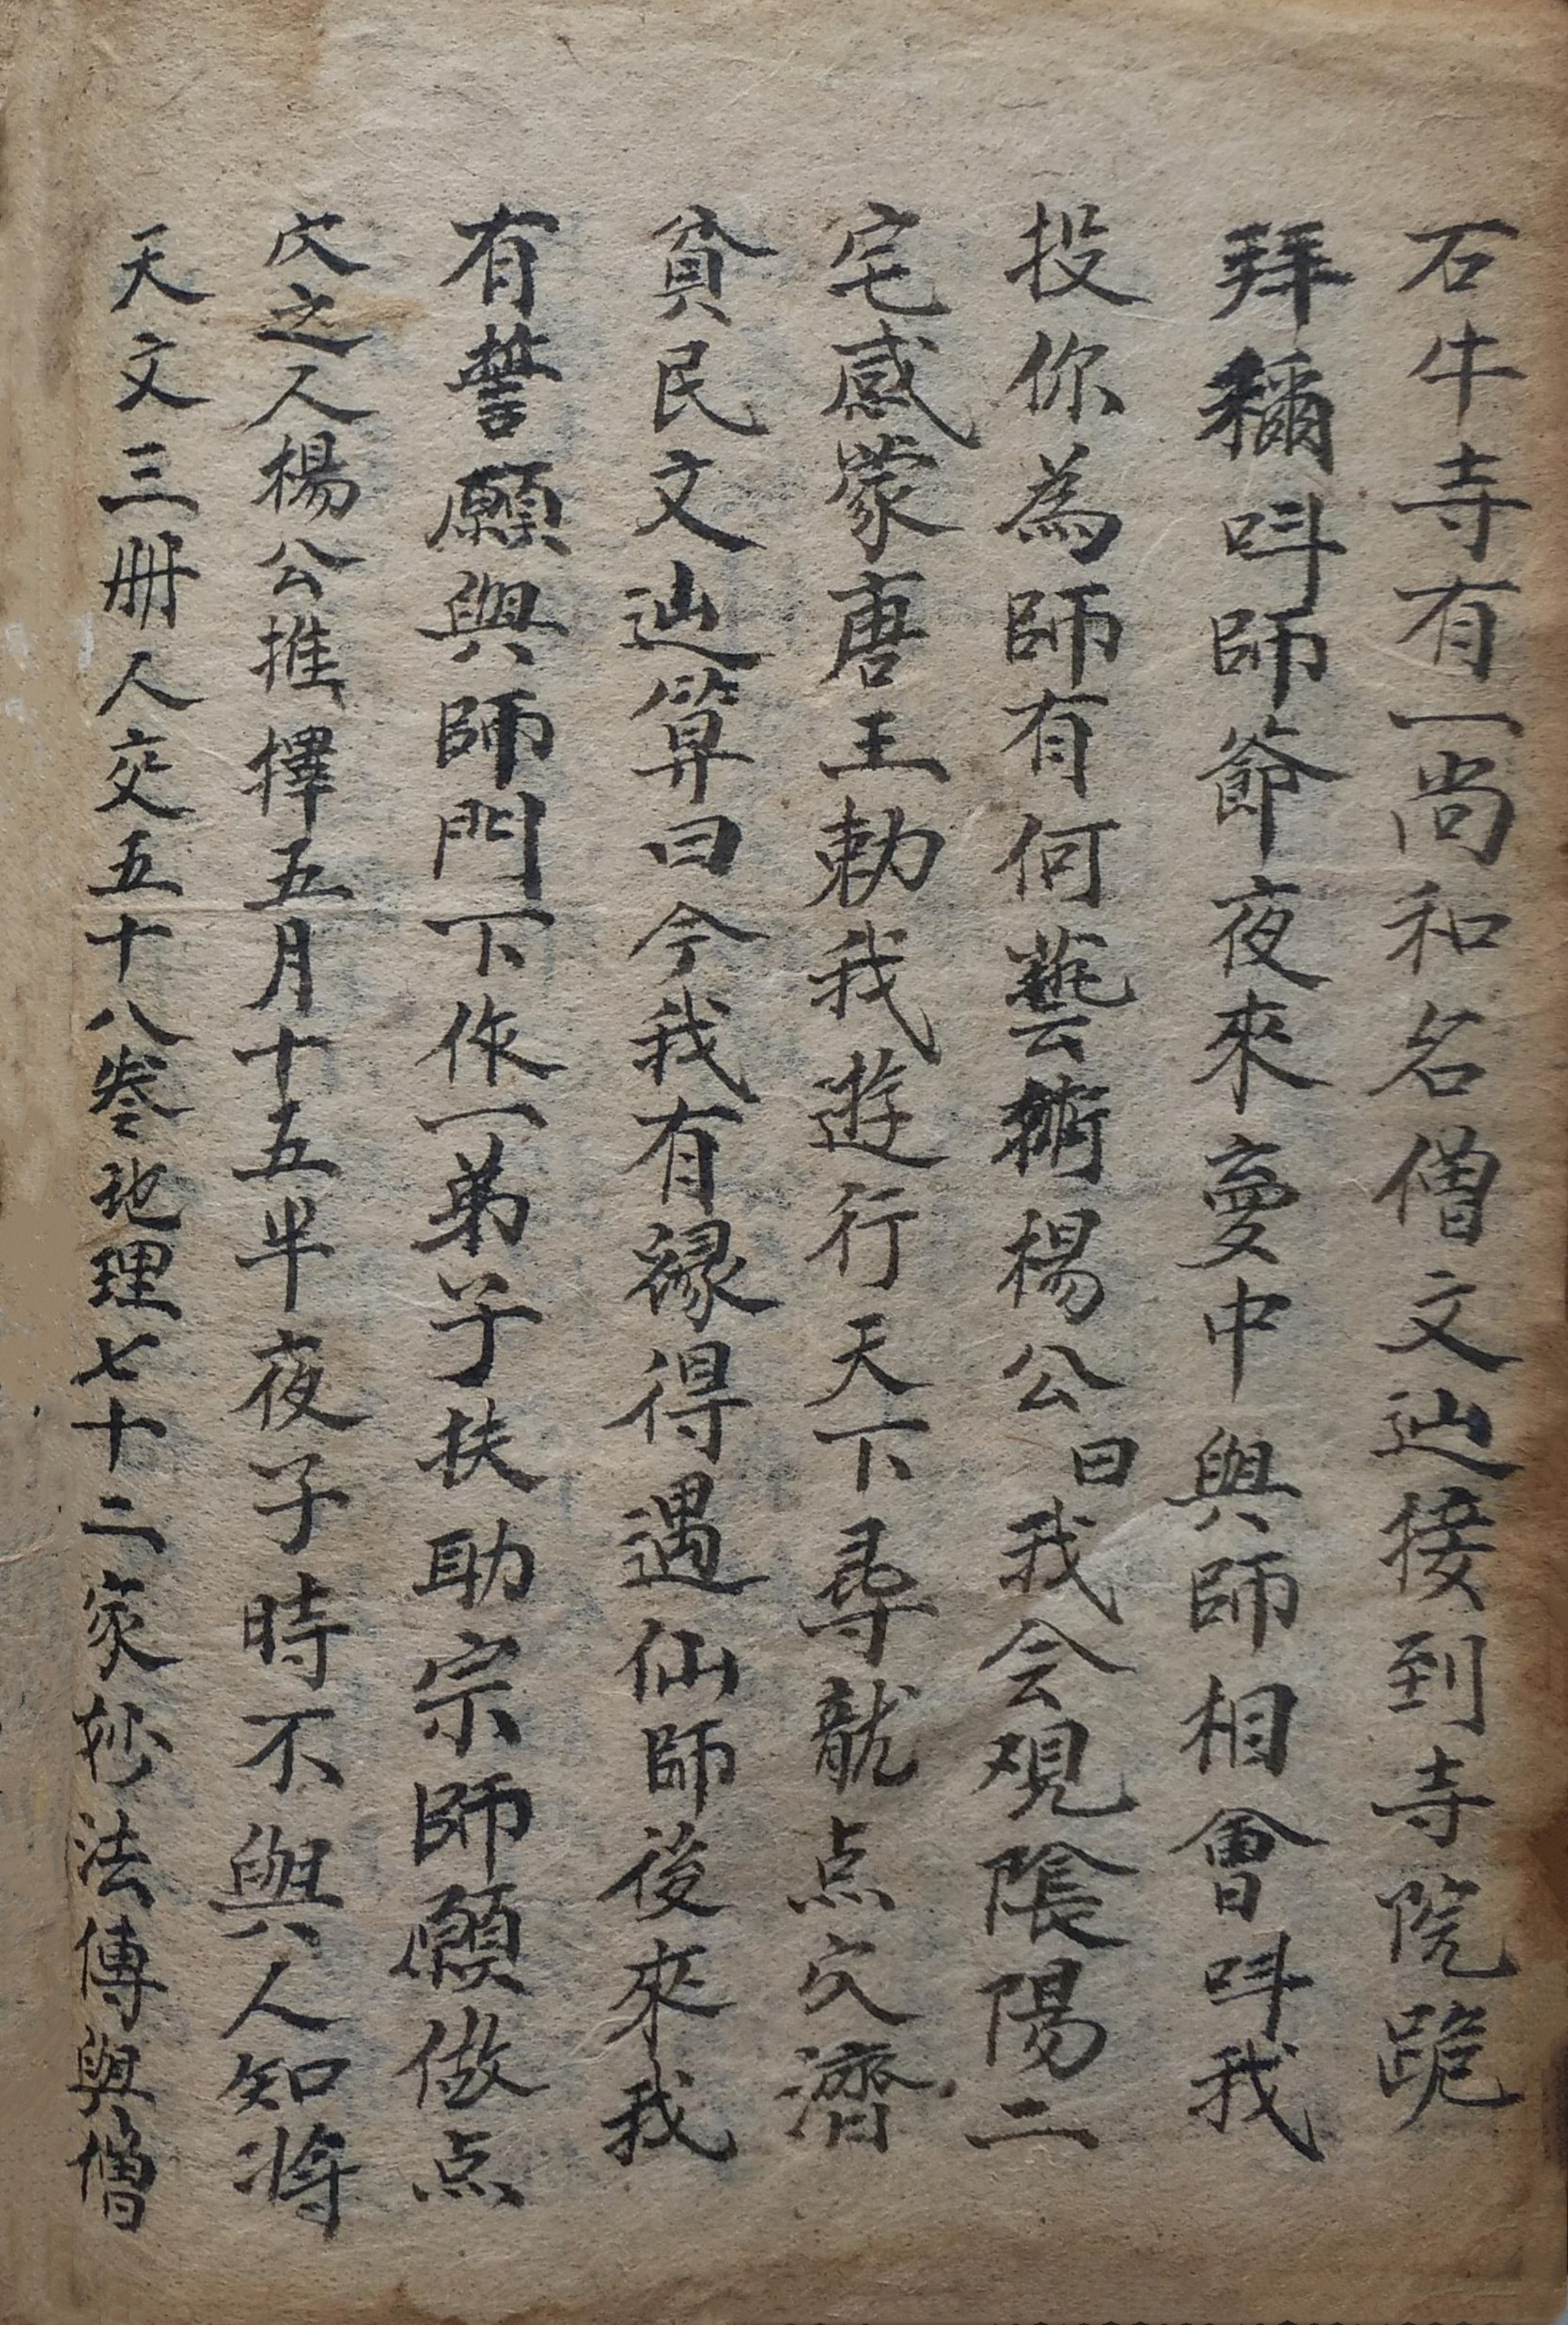 石牛寺有一尚和名僧文辿接到寺院跪
拜稱呌師爺夜來夢中與師相會呌我
投你為師有何藝術楊公曰我会观陰陽二
宅感蒙唐王勅我遊行天下尋龍点穴濟
貧民文辿算曰今我有緣得遇仙師後來我
有誓願與師門下作一弟子扶助宗師願做点
穴之人楊公推擇五月十五半夜子時不與人知将
天文三册人交五十八叁地理七十二家妙法傳與僧